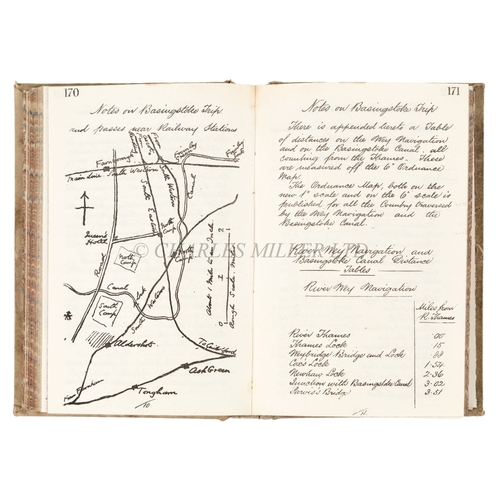 170
Notes on Basingstoke Trip
and passes near Railway Stations
Farnboro
Frimley
Main Line South Western
South Eastern
South Western
Queen's
Hotel
North
Camp
Canal
South
Camp
Aldershot
Farnham
Tongham
Ash Green
To Guildford
About 1 Mile to 1 inch
Rough Scale. Miles
10
171
Notes on Basingstoke Trip
There is appended hereto a Table
of distance on the Wey Navigation
and on the Basingstoke Canal, all
counting from the Thames. These
are measured off the 6" Ordnance
Map
The Ordnance Map, both on the
new 1" scale and on the 6" scale is
published for all the Country traversed
by the Wey Navigation and the
Basingstoke Canal.
River Wey Navigation and
Basingstoke Canal Distance
Tables
River Wey Navigation
Miles from
R. Thames
River Thames .00
Thames Lock .15
Weybridge Bridge and Lock .88
Coxes Lock 1.54
Newhaw Lock 2.36
Junction with Basingstoke Canal 3.02
Parvis's Bridge 3.51
11
© CHARLES MILLER LTD